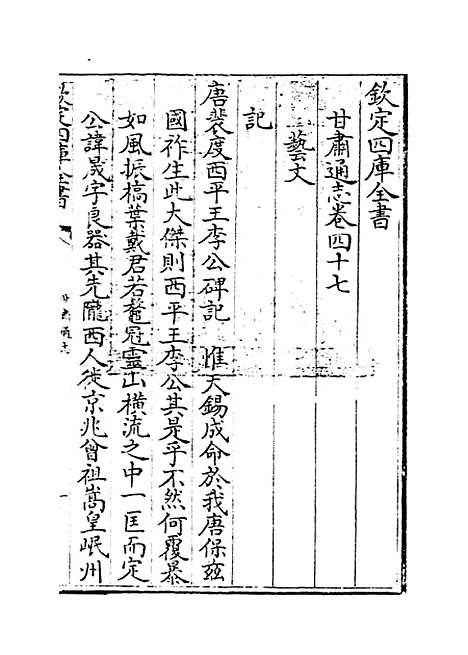 欽定四庫全書
甘肅通志卷四十七
藝文
記
唐裴度西平王李公碑記 惟天錫成命於我唐保玆
國祚生此大傑則西平王李公其是乎不然何覆暴
如風振槁葉戴君若鼇冠靈山橫流之中一匡而定
公諱晟字良器其先隴西人徙京兆曾祖嵩皇岷州
欽定四庫全書
甘肅通志
一